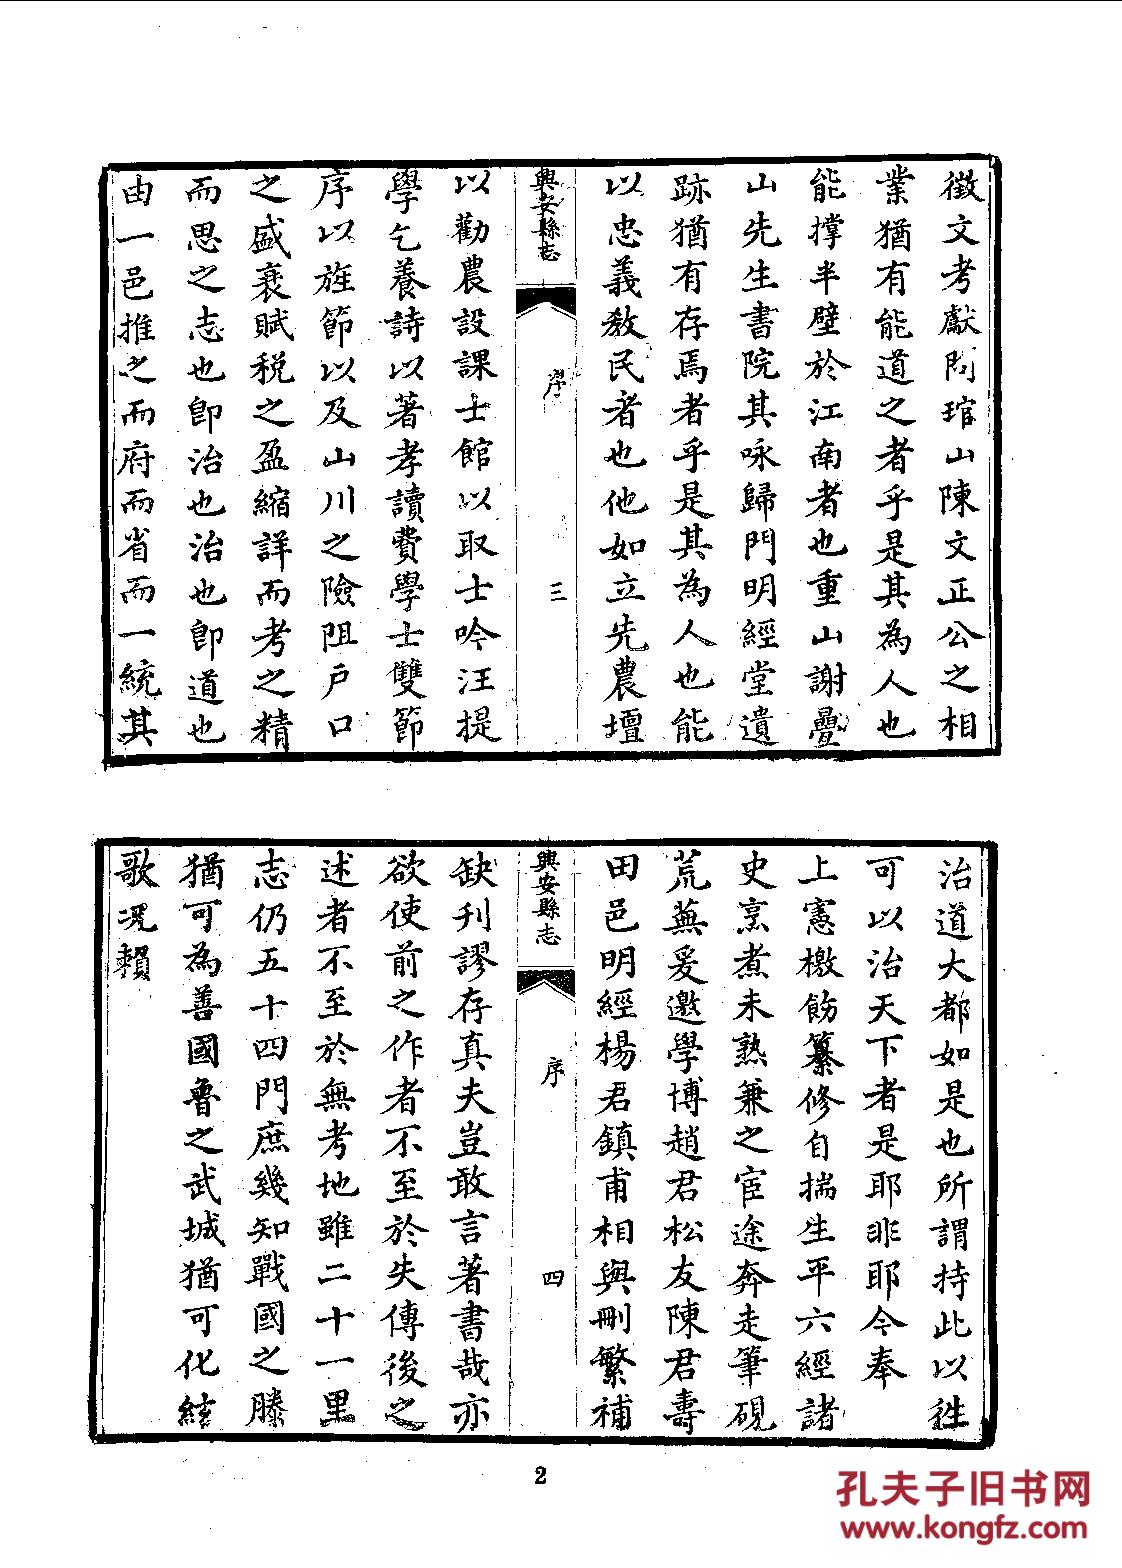 徵文考獻問琯山陳文正公之相
業猶有能道之者乎是其為人也
能撑半壁於江南者也重山謝疊
山先生書院其咏歸門明經堂遺
跡猶有存焉者乎是其為人也能
以忠義教民者也他如立先農壇
興安縣志
序
三
以勸農設課士館以取士吟汪提
學乞養詩以著孝讀費學士雙節
序以旌節以及山川之險阻戶口
之盛衰賦稅之盈縮詳而考之精
而思之志也卽治也治也卽道也
由一邑推之而府而省而一統其
治道大都如是也所謂持此以徃
可以治天下者是耶非耶今奉
上憲檄飭纂修自揣生平六經諸
史烹煮未熟兼之宦途奔走筆硯
荒蕪爰邀學博趙君松友陳君壽
田邑明經楊君鎮甫相與刪繁補
興安縣志
序
四
缺刋謬存真夫豈敢言著書哉亦
欲使前之作者不至於失傳後之
述者不至於無考地雖二十一里
志仍五十四門庶幾知戰國之滕
猶可為善國魯之武城猶可化絃
歌况賴
2
孔夫子旧书网
www.kongfz.com